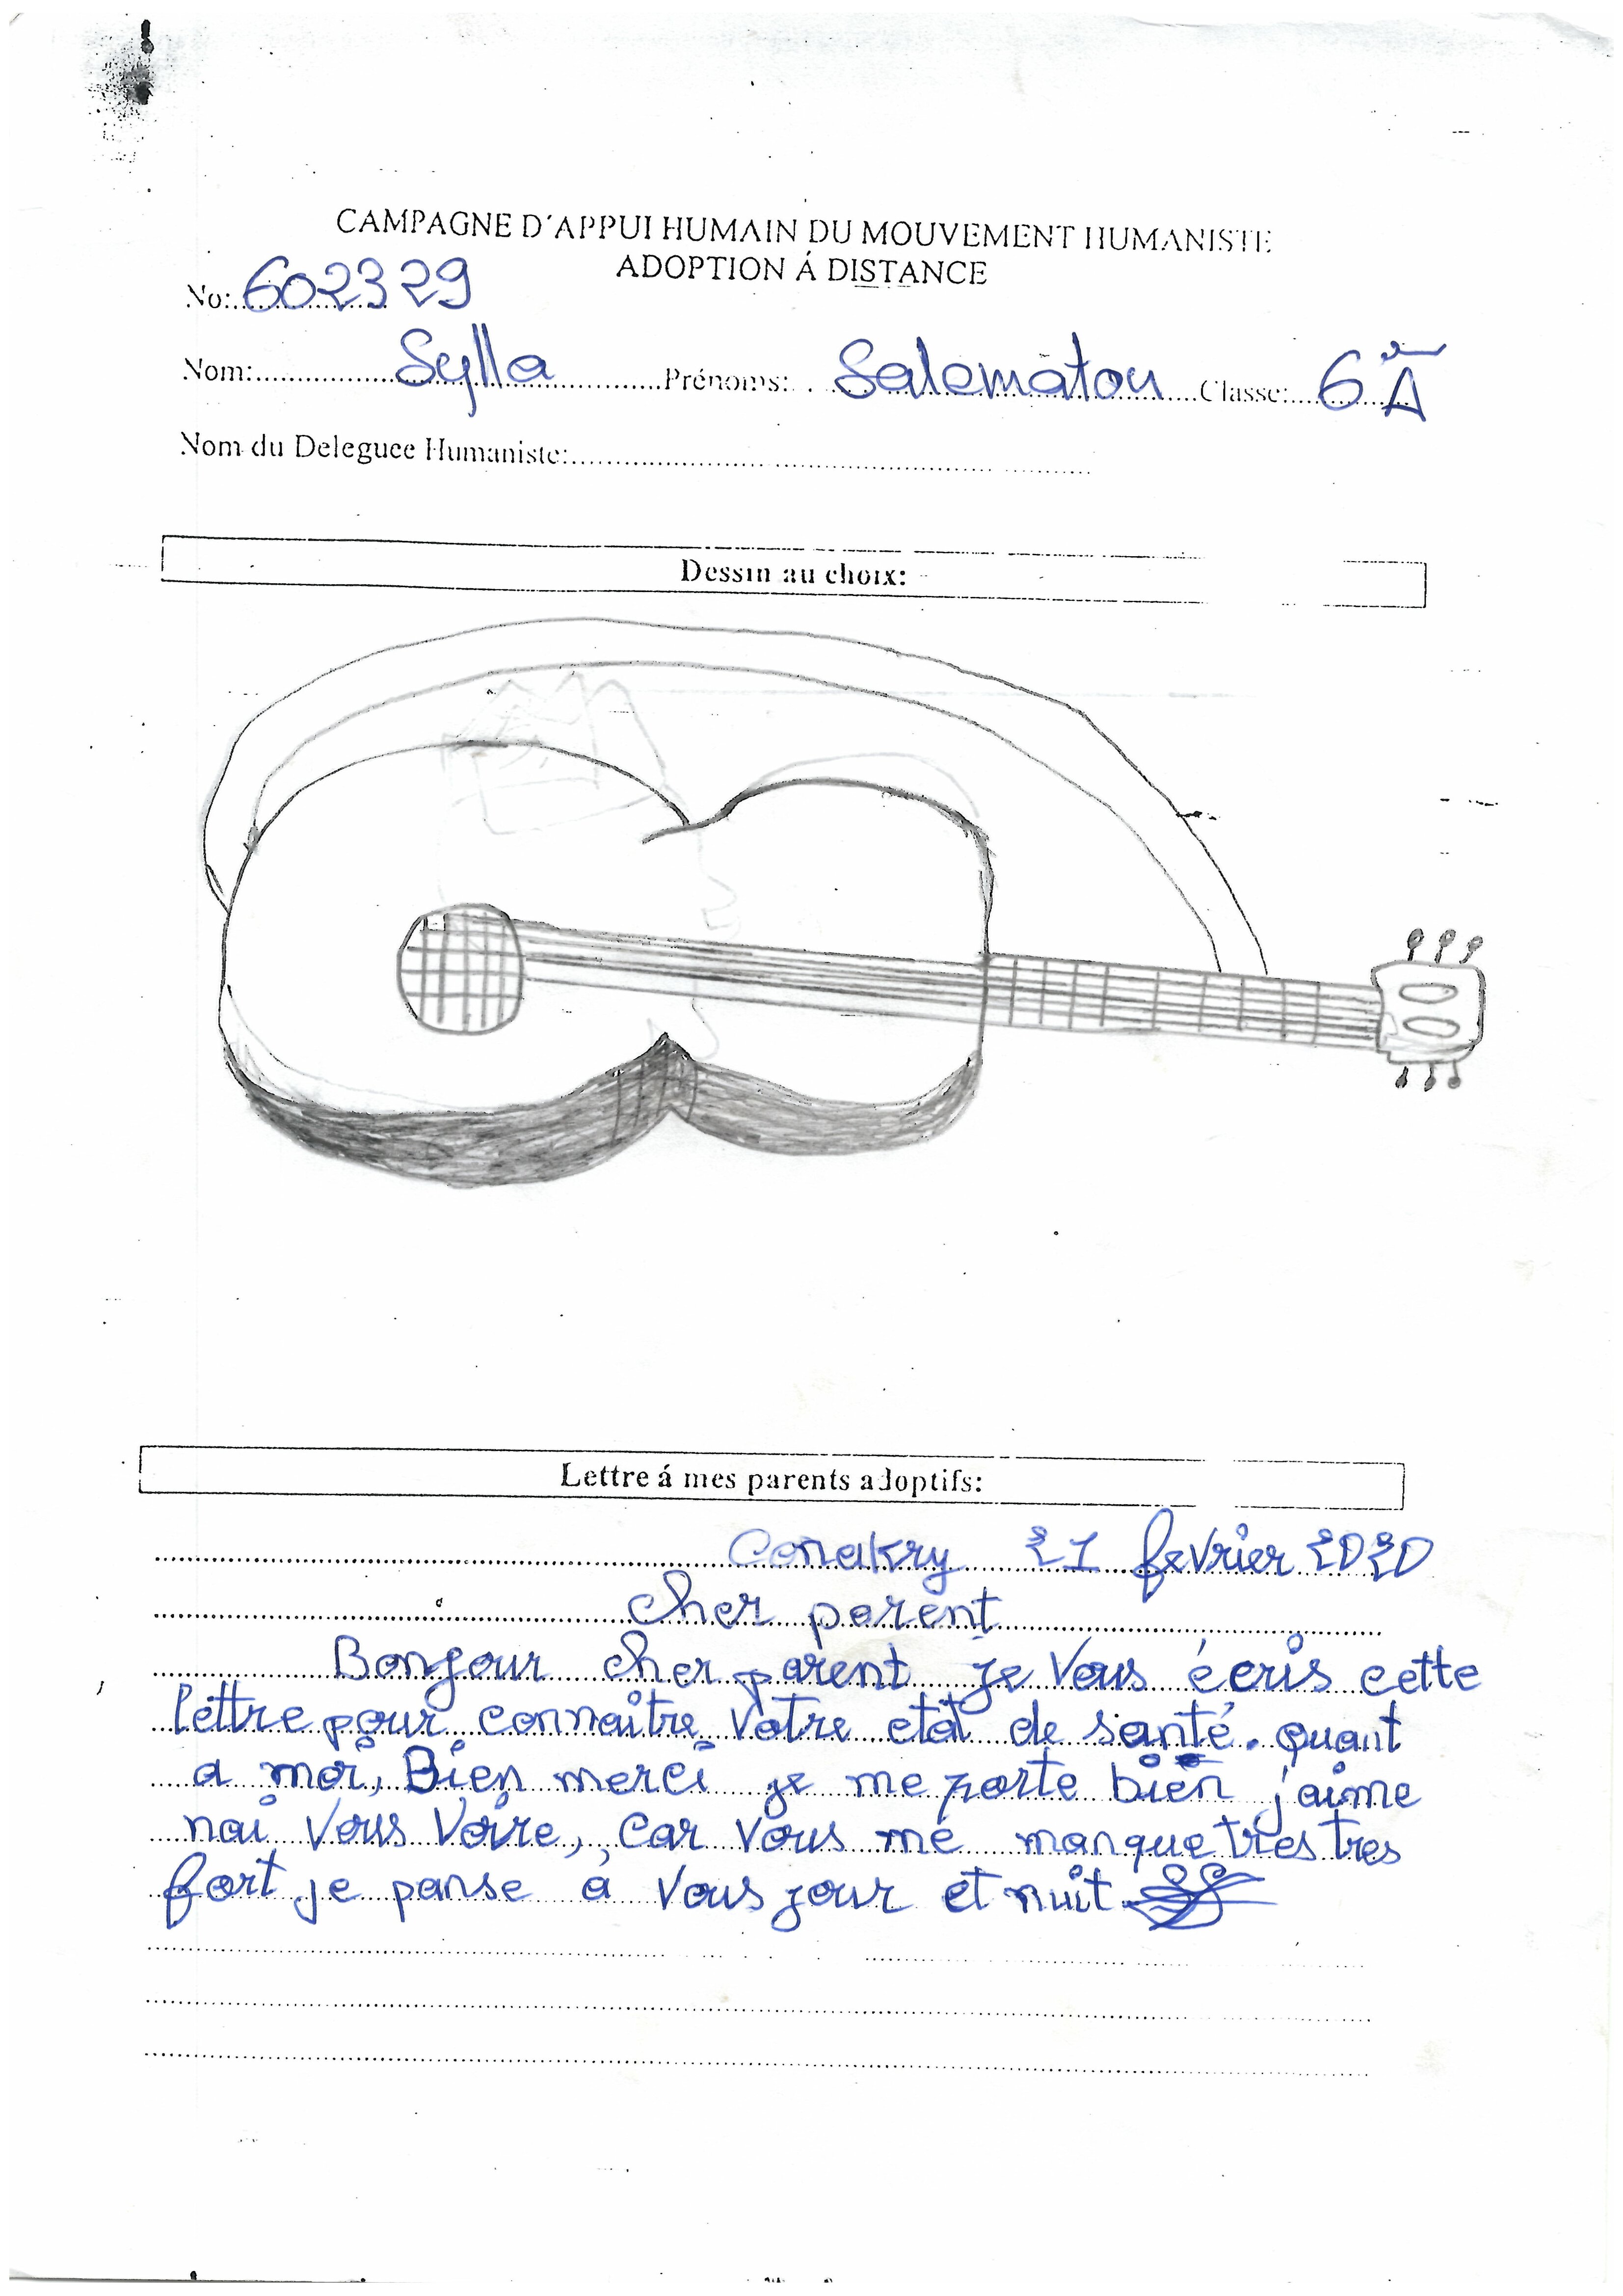 CAMPAGNE D'APPUI HUMAIN DU MOUVEMENT HUMANISTE
ADOPTION Á DISTANCE
No: 602329
Nom: Sylla Prénoms: Salematou Classe: 6è A
Nom du Deleguee Humaniste:
Dessin au choix:
Lettre á mes parents adoptifs:
Conakry 21 fevrier 2020
Cher parent
Bonjour cher parent je vous écris cette
lettre pour connaître votre etat de santé. quant
a moi, Bien merci je me porte bien j'aime
rai vous voire, car vous me manque tres tres
fort je panse a vous jour et nuit